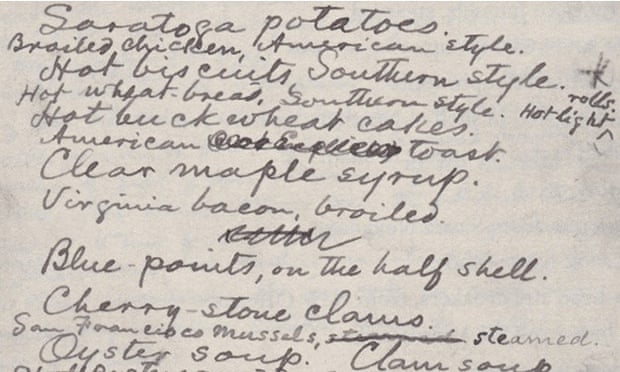 Saratoga potatoes.
Broiled chicken, American style.
Hot biscuits, Southern style.
Hot wheat-bread, Southern style. Hot light rolls.
Hot buckwheat cakes.
American toast.
Clear maple syrup.
Virginia bacon, broiled.
Blue-points, on the half shell.
Cherry-stone clams.
San Francisco mussels, steamed. steamed.
Oyster soup. Clam soup